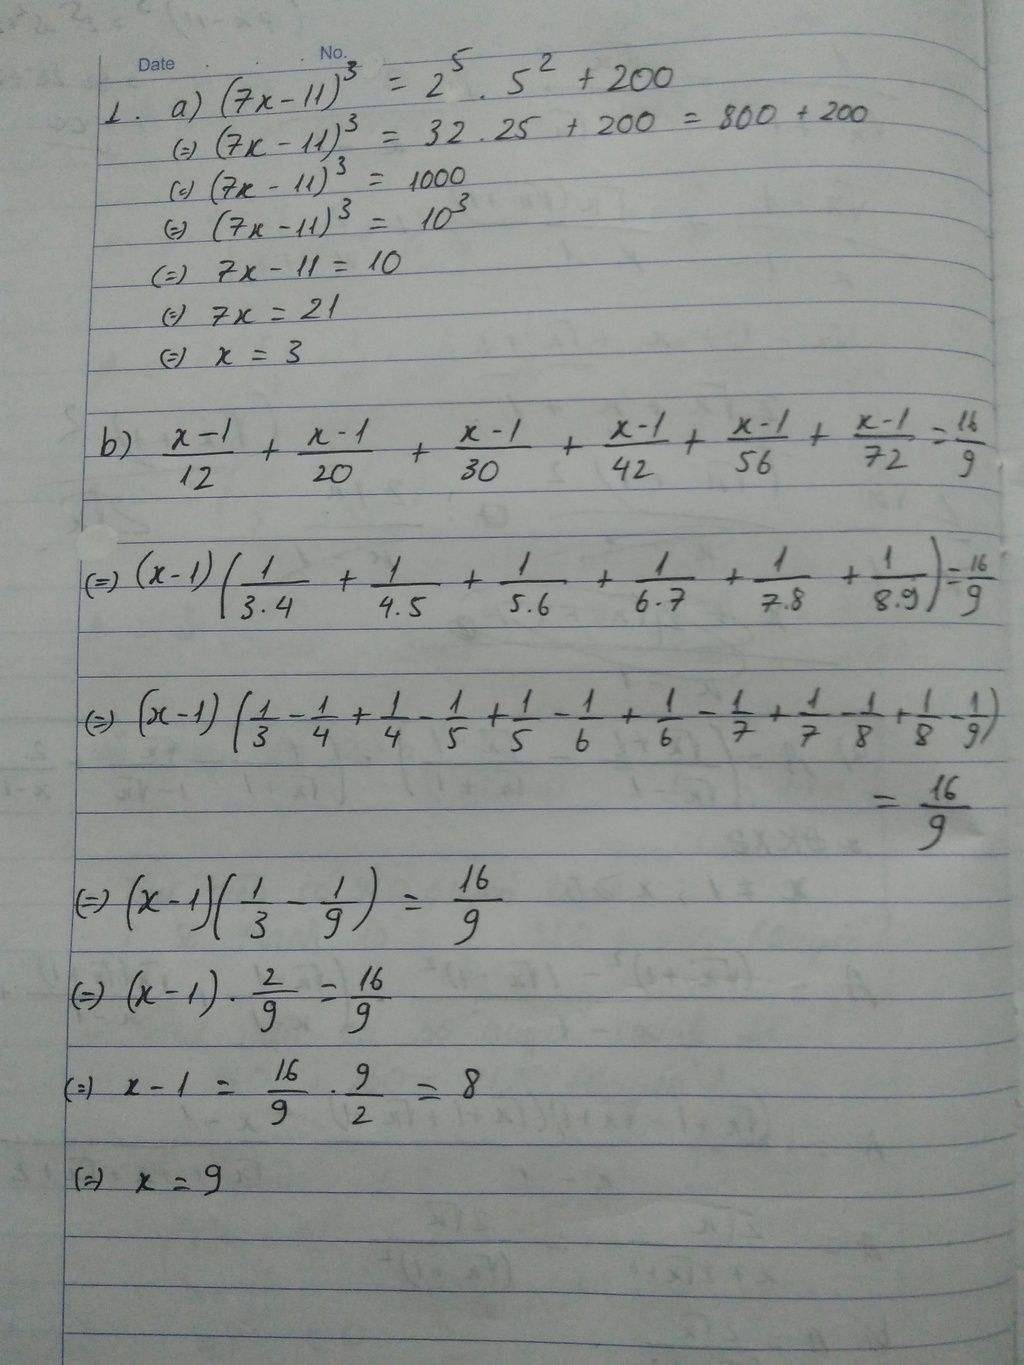 Date No.
1. a) (7x-11)³ = 2⁵ . 5² + 200
(=) (7x - 11)³ = 32 . 25 + 200 = 800 + 200
(=) (7x - 11)³ = 1000
(=) (7x - 11)³ = 10³
(=) 7x - 11 = 10
(=) 7x = 21
(=) x = 3
b) (x-1)/12 + (x-1)/20 + (x-1)/30 + (x-1)/42 + (x-1)/56 + (x-1)/72 = 16/9
(=) (x-1) (1/3.4 + 1/4.5 + 1/5.6 + 1/6.7 + 1/7.8 + 1/8.9) = 16/9
(=) (x-1) (1/3 - 1/4 + 1/4 - 1/5 + 1/5 - 1/6 + 1/6 - 1/7 + 1/7 - 1/8 + 1/8 - 1/9)
= 16/9
(=) (x-1) (1/3 - 1/9) = 16/9
(=) (x-1) . 2/9 = 16/9
(=) x - 1 = 16/9 . 9/2 = 8
(=) x = 9